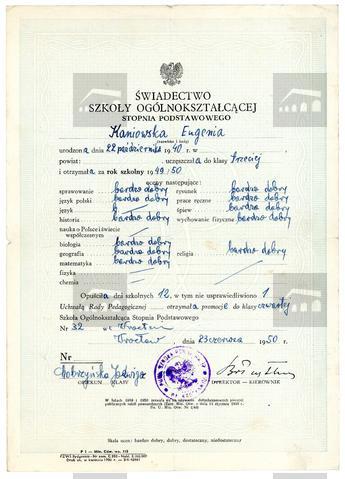 ŚWIADECTWO
SZKOŁY OGÓLNOKSZTAŁCĄCEJ
STOPNIA PODSTAWOWEGO
Kaniowska Eugenia
(nazwisko i imię)
urodzona dnia 22 października 1940 r. w
powiat: uczęszczała do klasy trzeciej
i otrzymała za rok szkolny 1949/50
oceny następujące:
sprawowanie bardzo dobry rysunek bardzo dobry
język polski bardzo dobry prace ręczne bardzo dobry
język śpiew bardzo dobry
historia bardzo dobry wychowanie fizyczne bardzo dobry
nauka o Polsce i świecie
współczesnym
biologia bardzo dobry
geografia bardzo dobry religia bardzo dobry
matematyka bardzo dobry
fizyka
chemia
Opuściła dni szkolnych 12, w tym nie usprawiedliwiono 1
Uchwałą Rady Pedagogicznej otrzymała promocję do klasy czwartej
Szkoła Ogólnokształcąca Stopnia Podstawowego
Nr 32 we Wrocławiu
Wrocław dnia 23 czerwca 1950 r.
Nr
Dobrzyńska Jadwiga
OPIEKUN KLASY DYREKTOR - KIEROWNIK
Skala ocen: bardzo dobry, dobry, dostateczny, niedostateczny